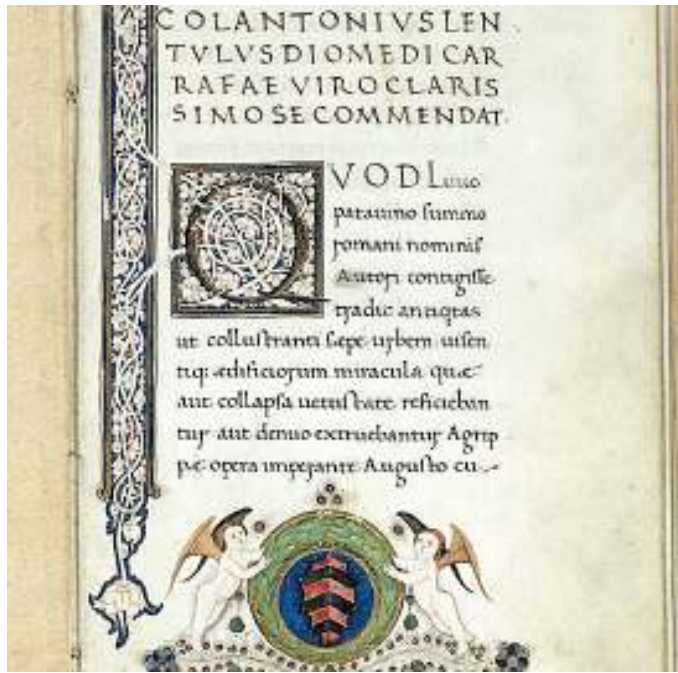 COLANTONIVS LEN
TVLVS DIOMEDI CAR
RAFAE VIRO CLARIS
SIMO SE COMMENDAT.
QVOD Liuio
patauino summo
romani nominis
Autori contigisse
tradit antiqtas
ut collustranti sepe urbem uisen
tiq; ædificiorum miracula quæ
aut collapsa uetustate reficieban
tur aut denuo extruebantur Agrip
pæ opera imperante Augusto cu